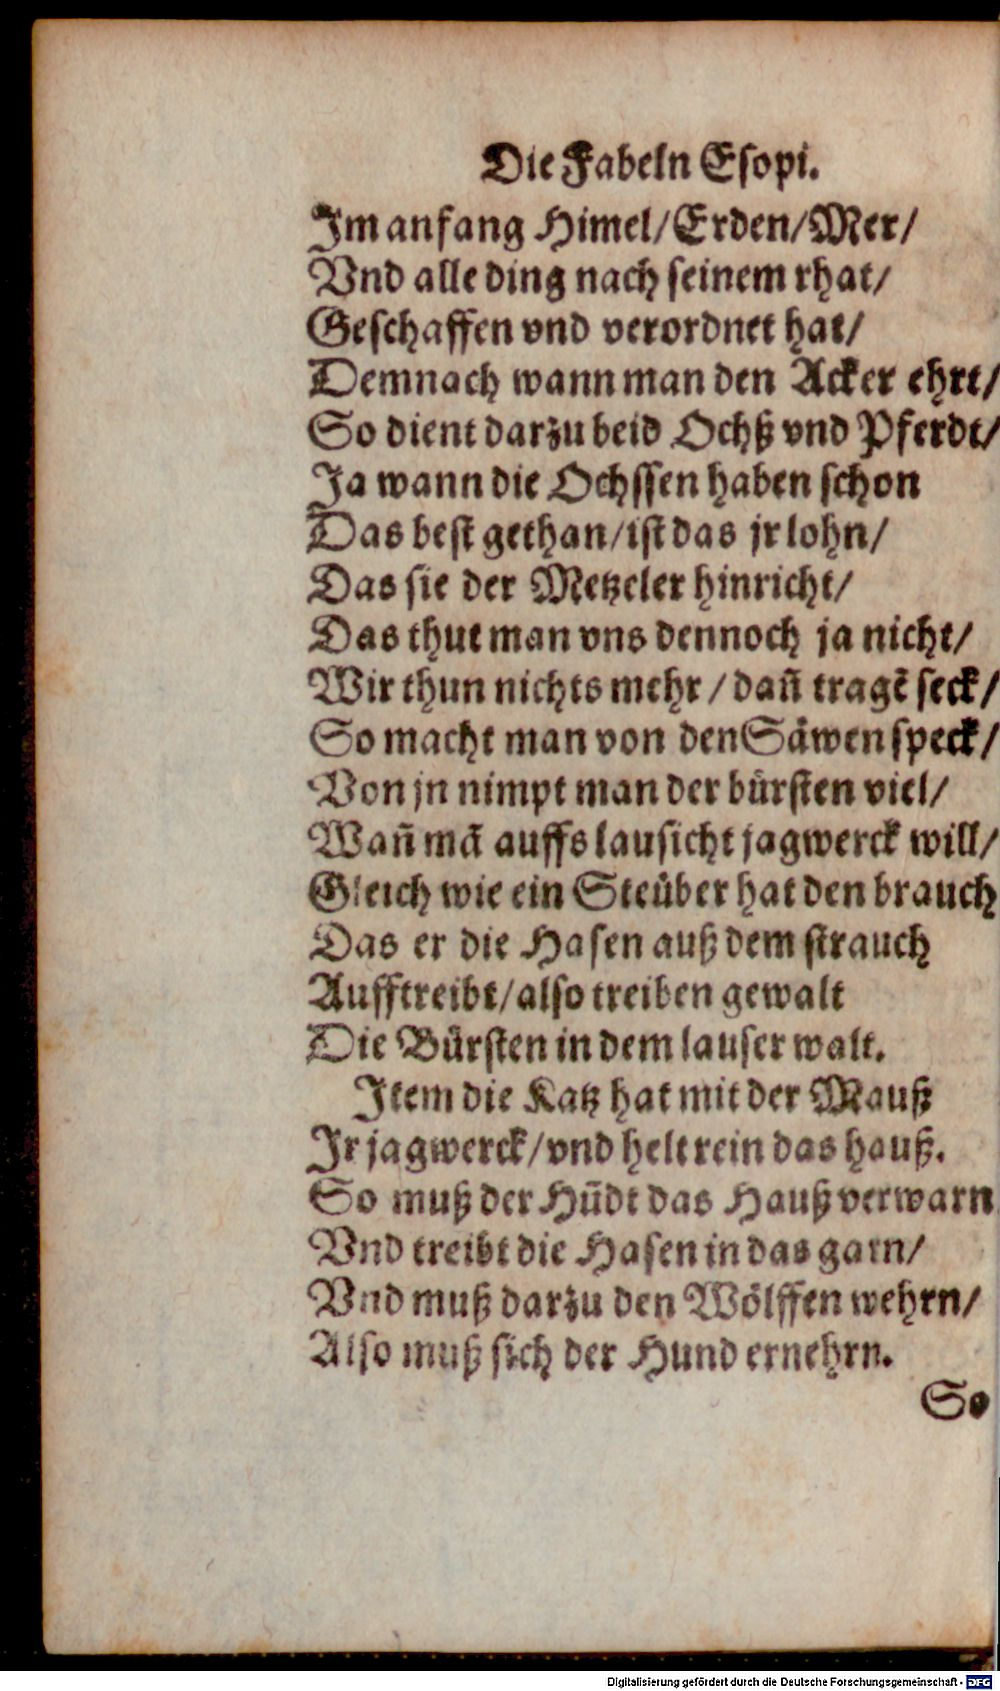 Die Fabeln Esopi.
Im anfang Himel/Erden/Mer/
Vnd alle ding nach seinem rhat/
Geschaffen vnd verordnet hat/
Demnach wann man den Acker ehrt/
So dient darzu beid Ochß vnd Pferdt/
Ja wann die Ochssen haben schon
Das best gethan/ist das jr lohn/
Das sie der Metzeler hinricht/
Das thut man vns dennoch ja nicht/
Wir thun nichts mehr / dañ tragẽ seck/
So macht man von den Säwen speck/
Von jn nimpt man der bürsten viel/
Wañ mã auffs lausicht jagwerck will/
Gleich wie ein Steüber hat den brauch
Das er die Hasen auß dem strauch
Aufftreibt/also treiben gewalt
Die Bürsten in dem lauser walt.
Item die Katz hat mit der Mauß
Jr jagwerck/vnd helt rein das hauß.
So muß der Hũdt das Hauß verwarn
Vnd treibt die Hasen in das garn/
Vnd muß darzu den Wölffen wehrn/
Also muß sich der Hund ernehrn.
So
Digitalisierung gefördert durch die Deutsche Forschungsgemeinschaft - DFG